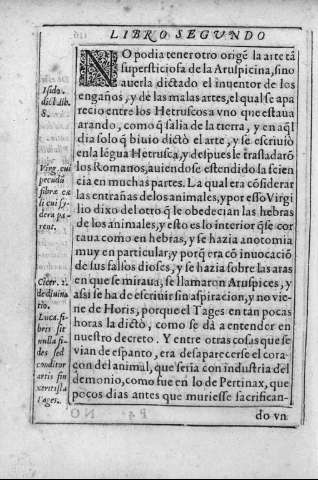 LIBRO SEGVNDO
NO podia tener otro origē la arte tā
supersticiosa de la Aruspicina, sino
auerla dictado el inuentor de los
engaños, y de las malas artes, el qual se apa
recio entre los Hetruscos a vno que estaua
arando, como q̃ salia de la tierra, y en aq̃l
dia solo q̃ biuio dictò el arte, y se escriuio
en la lēgua Hetrusca, y despues le trasladarō
los Romanos, auiendose estendido la scien
cia en muchas partes. La qual era cōsiderar
las entrañas de los animales, y por esso Virgi
lio dixo del otro q̃ le obedecian las hebras
de los animales, y esto es lo interior q̃ se cor
taua como en hebras, y se hazia anotomia
muy en particular, y porq̃ era cō inuocació
de sus falsos dioses, y se hazia sobre las aras
en que se miraua, se llamaron Aruspices, y
assi se ha de escriuir sin aspiracion, y no vie
ne de Horis, porque el Tages en tan pocas
horas la dictò, como se dâ a entender en
nuestro decreto. Y entre otras cosas que se
vian de espanto, era desaparecerse el cora
çon del animal, que seria con industria del
demonio, como fue en lo de Pertinax, que
pocos dias antes que muriesse sacrifican-
do vn
Isido.
dict. lib.
8.
Virg. cui
pecudū
fibræ cæ
li cui sy
dera pa-
rent.
Cicer. 2.
de diuina
tio.
Luca. fi-
bris sit
nulla fi-
des sed
conditor
artis fin
xerit ista
Tages.